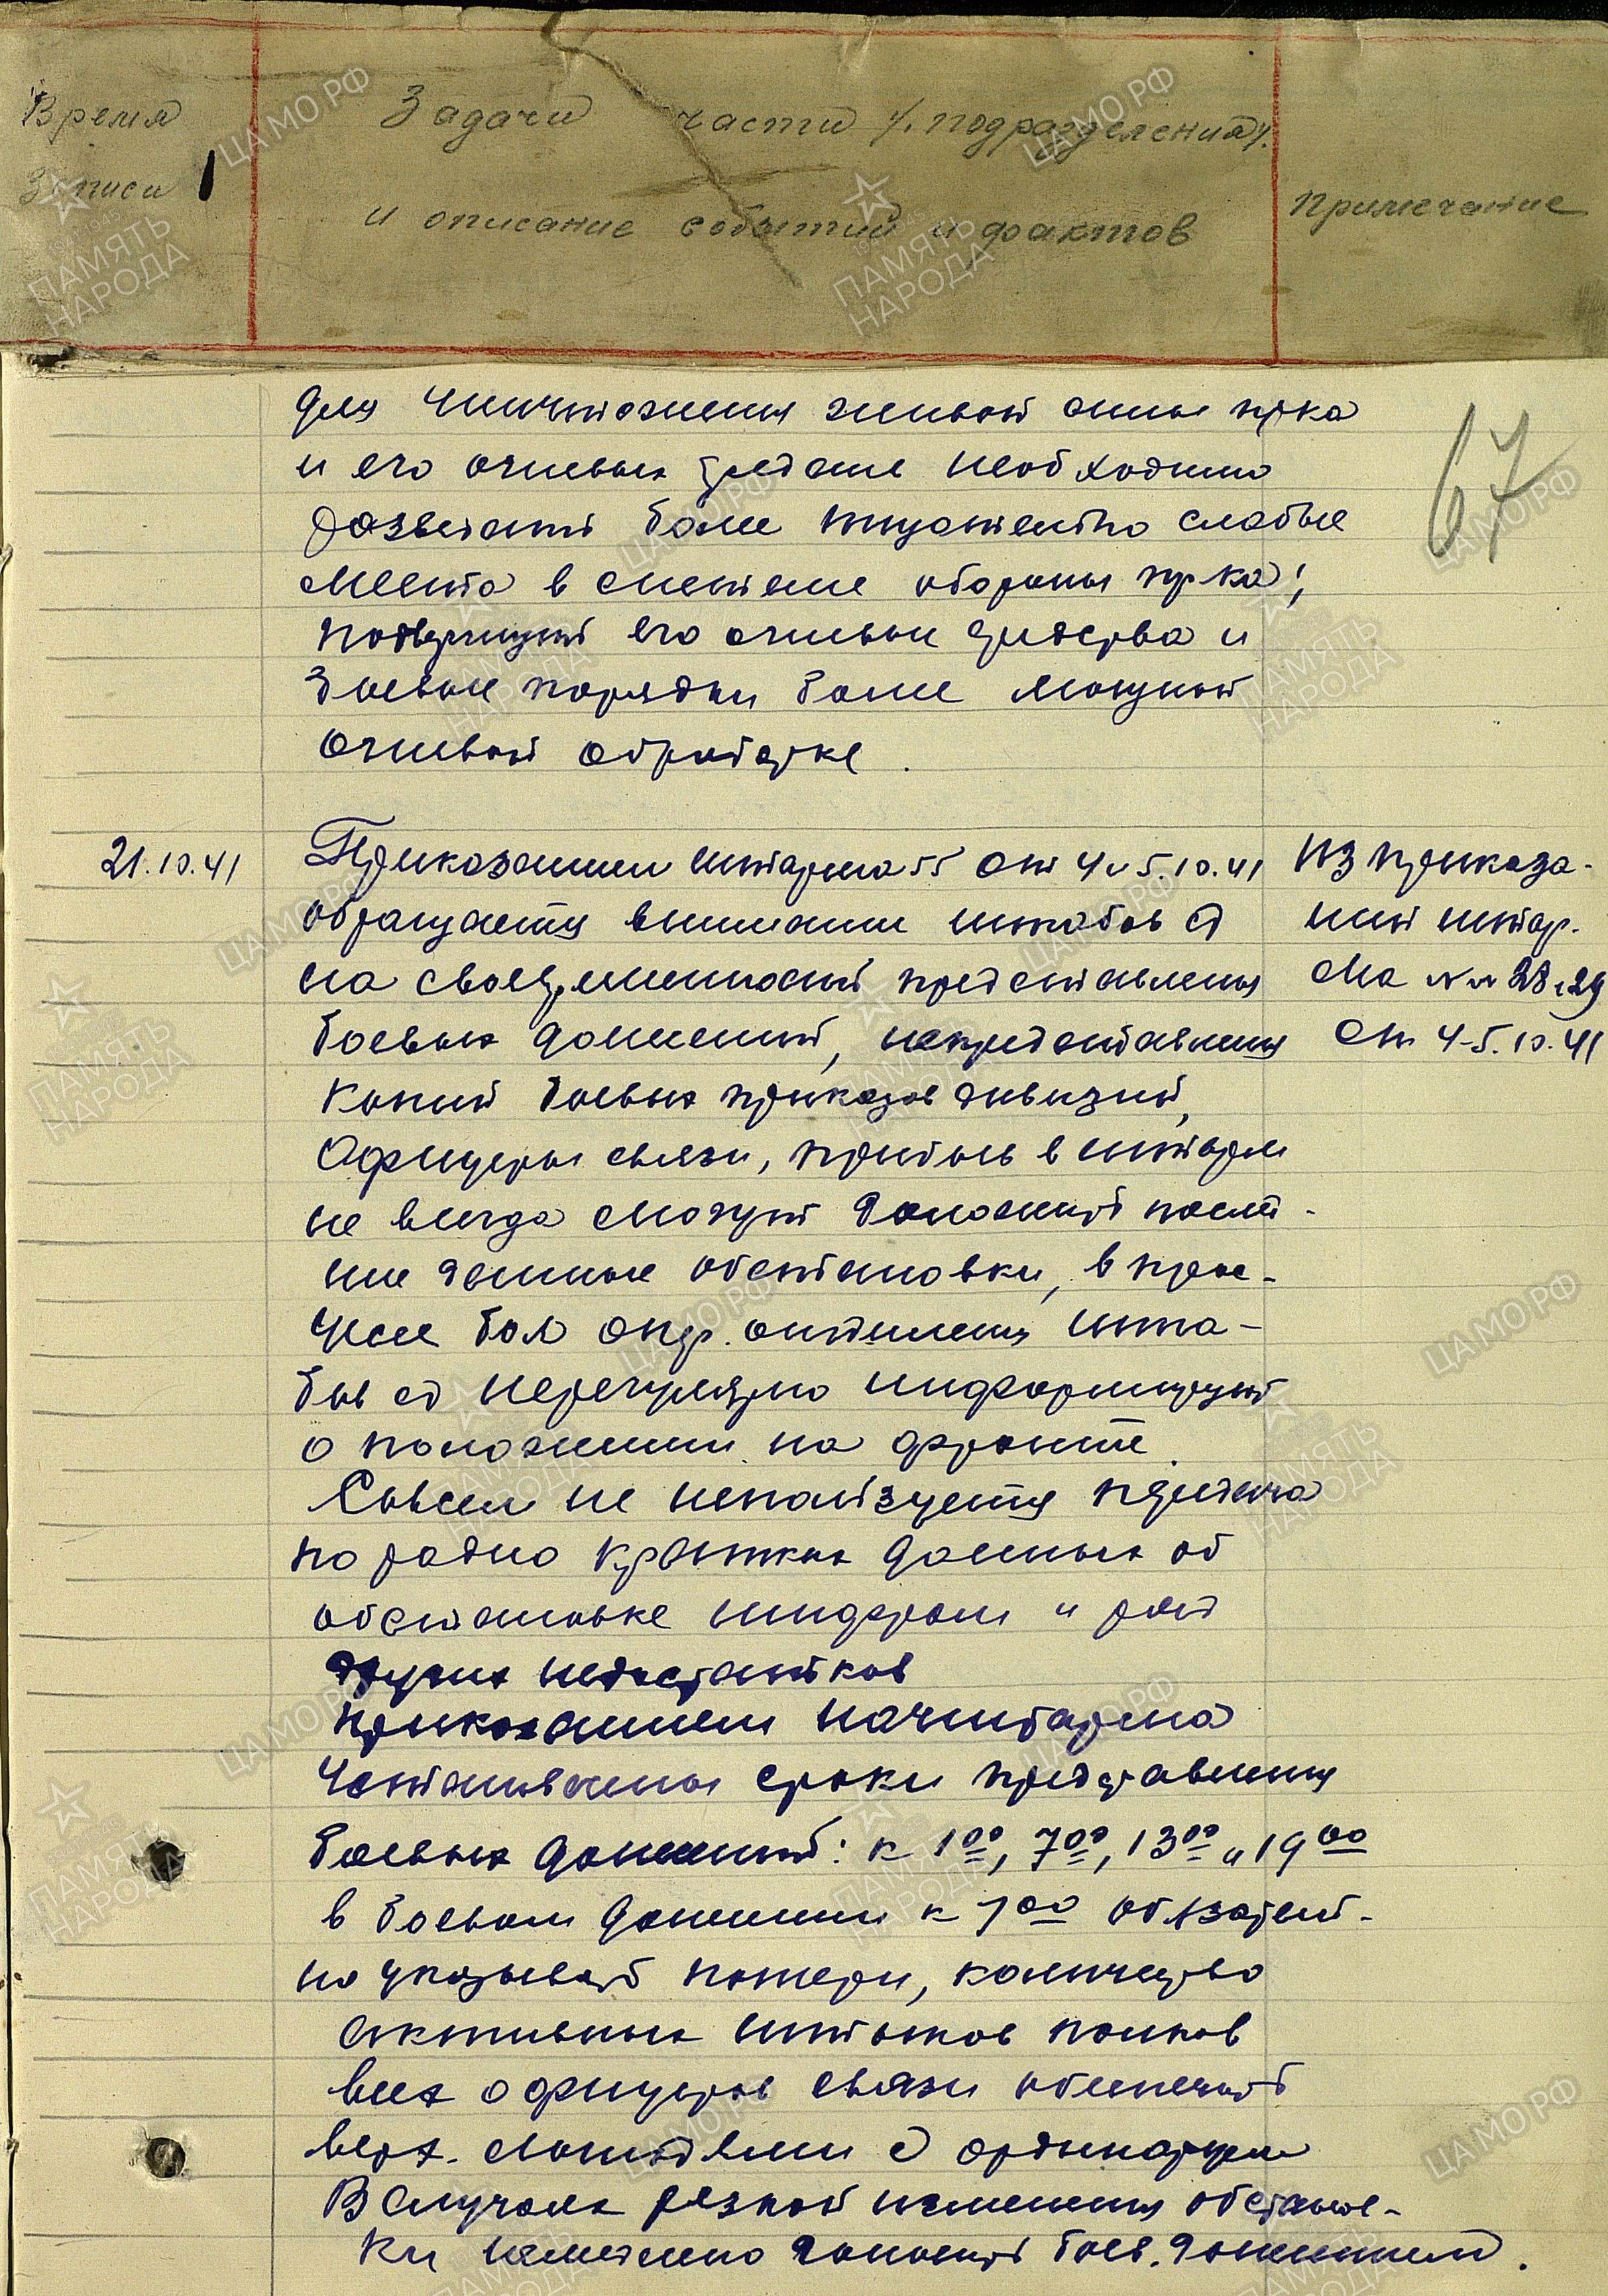 Время
Задачи части /подразделения/
записи
и описание событий и фактов
Примечание
67
для уничтожения живой силы пр-ка
и его огневых средств необходимо
разведать более тщательно слабые
места в системе обороны пр-ка;
подвергнуть его огневые средства и
боевые порядки более мощной
огневой обработке.
21.10.41
Приказанием штарма 55 от 4 и 5.10.41
обращается внимание штабов сд
на своевременность представления
боевых донесений, непредставления
копий боевых приказов дивизий,
Офицеры связи, прибыв в штарм
не всегда смогут доложить послед-
ние данные обстановки, в про-
цессе боя опер. отделения шта-
бов сд нерегулярно информируют
о положении на фронте.
Совсем не используется передача
по радио кратких данных об
обстановке шифром и ряд
других недостатков
приказанием начштарма
установлены сроки представления
боевых донесений: к 1 00, 7 00, 13 00 и 19 00
в боевом донесении к 1 00 обязатель-
но указывать потери, количество
активных штыков полков
всех офицеров связи обеспечить
верх. лошадями с ординарцем
В случаях резкой изменения обстанов-
ки немедленно доносить боев. донесением.
Из приказа-
ний штар-
ма №№ 28 и 29
от 4-5.10.41